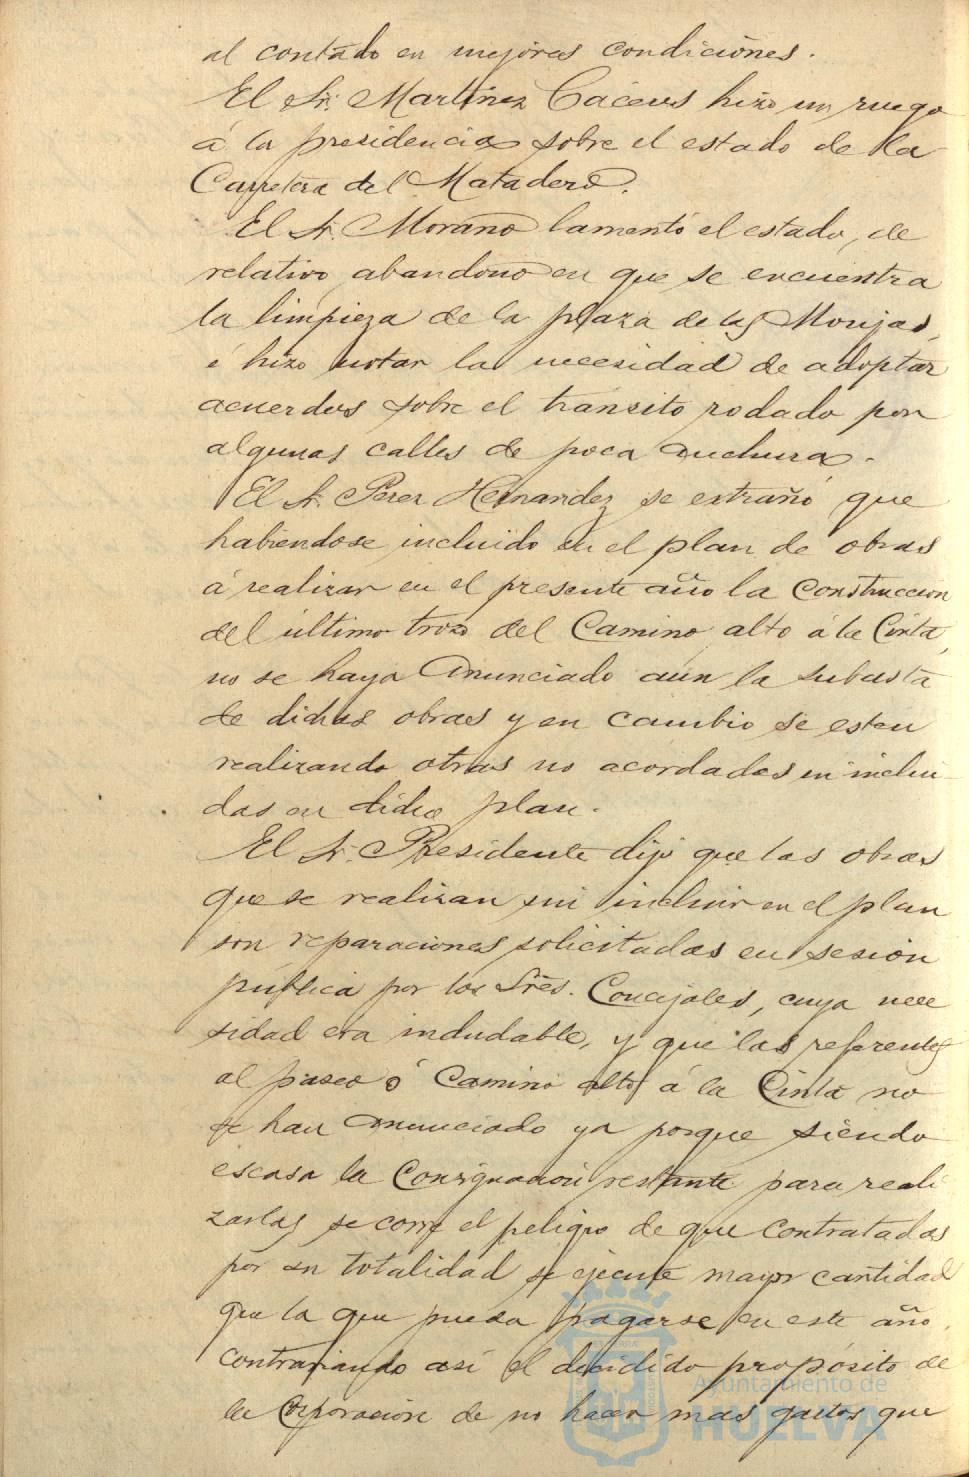 al contado en mejores condiciones.
El Sr. Martinez Cáceres hizo un ruego
á la presidencia sobre el estado de la
Carretera del Matadero.
El Sr. Morano lamentó el estado, de
relativo abandono en que se encuentra
la limpieza de la plaza de las Monjas,
é hizo notar la necesidad de adoptar
acuerdos sobre el transito rodado por
algunas calles de poca anchura.
El Sr. Perez Hernandez se estrañó que
habiendose incluido en el plan de obras
á realizar en el presente año la construccion
del último trozo del Camino alto á la Cinta,
no se haya anunciado aún la subasta
de dichas obras y en cambio se esten
realizando otras no acordadas ni inclui-
das en dicho plan.
El Sr. Presidente dijo que las obras
que se realizan sin incluir en el plan
son reparaciones solicitadas en sesión
pública por los Sres. Concejales, cuya nece
sidad era indudable, y que las referentes
al paseo ó Camino alto á la Cinta no
se han anunciado ya porque siendo
escasa la Consignación restante para reali
zarlas se corre el peligro de que contratadas
por su totalidad se ejecute mayor cantidad
que la que pueda pagarse en este año,
contrariando así el decidido propósito de
la Corporación de no hacer mas gastos que
Ayuntamiento de
HUELVA